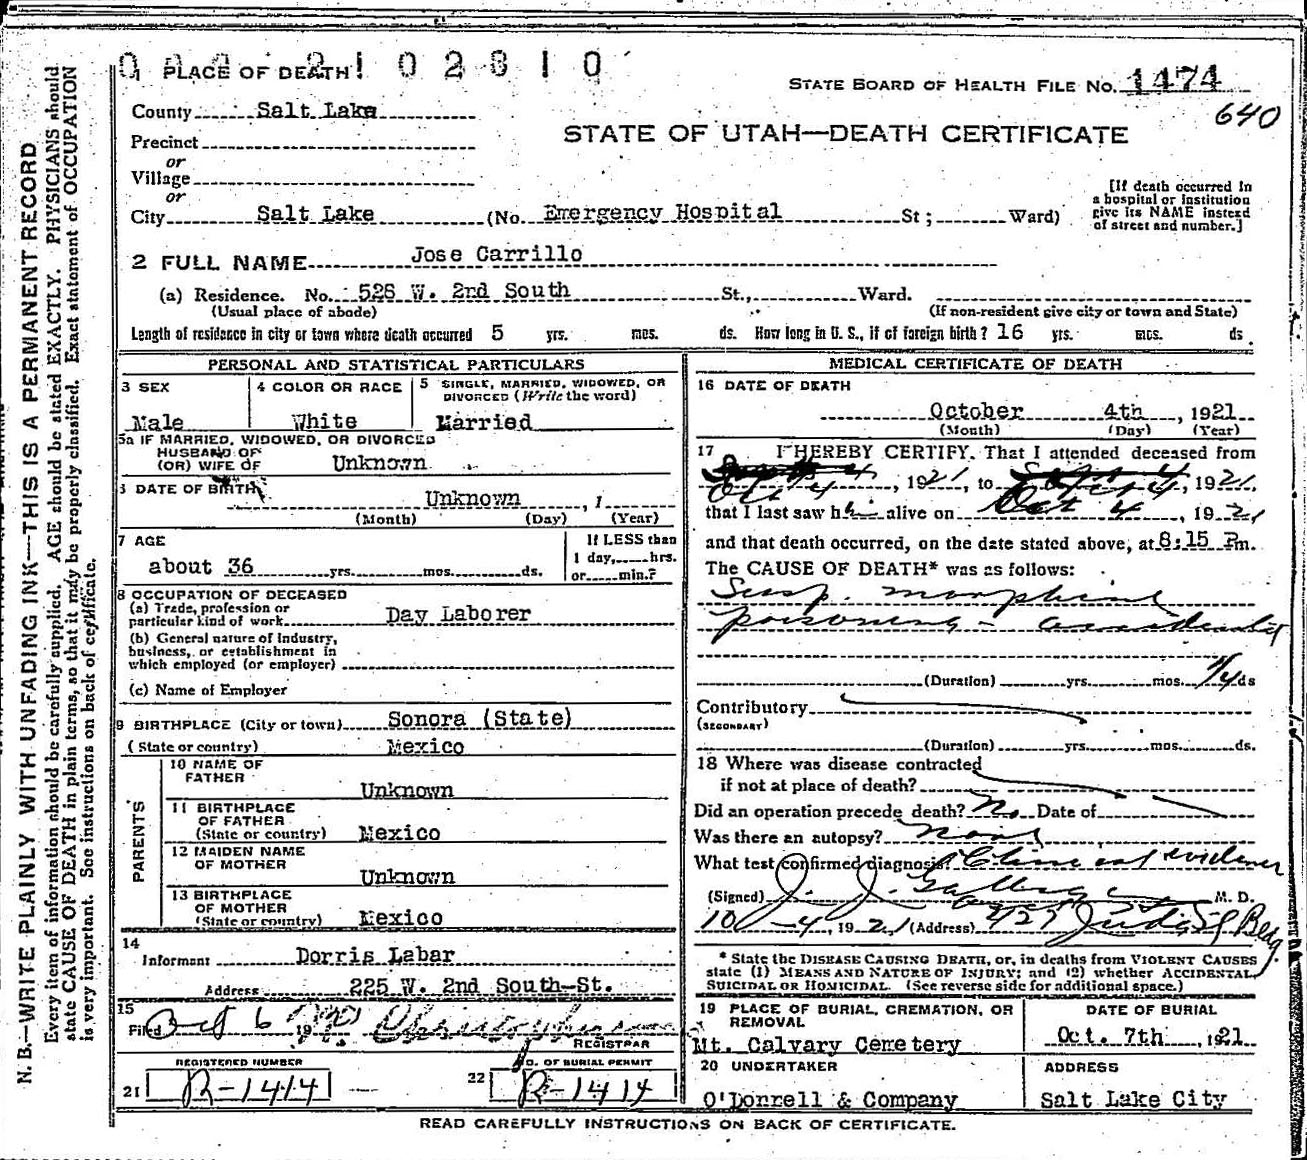 0 2 1 0 2 8 1 0
1 PLACE OF DEATH
STATE BOARD OF HEALTH FILE NO. 1474
640
County Salt Lake
STATE OF UTAH—DEATH CERTIFICATE
Precinct
or
Village
or
City Salt Lake (No. Emergency Hospital St; Ward)
[If death occurred in
a hospital or institution
give its NAME instead
of street and number.]
2 FULL NAME Jose Carrillo
(a) Residence. No. 526 W. 2nd South St., Ward.
(Usual place of abode) (If non-resident give city or town and State)
Length of residence in city or town where death occurred 5 yrs. mos. ds. How long in U. S., if of foreign birth? 16 yrs. mos. ds.
PERSONAL AND STATISTICAL PARTICULARS
3 SEX
Male
4 COLOR OR RACE
White
5 SINGLE, MARRIED, WIDOWED, OR
DIVORCED (Write the word)
Married
5a IF MARRIED, WIDOWED, OR DIVORCED
HUSBAND OF
(OR) WIFE OF Unknown
6 DATE OF BIRTH
Unknown , 1
(Month) (Day) (Year)
7 AGE
about 36 yrs. mos. ds.
If LESS than
1 day, hrs.
or min.?
8 OCCUPATION OF DECEASED
(a) Trade, profession or
particular kind of work Day Laborer
(b) General nature of Industry,
business, or establishment in
which employed (or employer)
(c) Name of Employer
9 BIRTHPLACE (City or town) Sonora (State)
(State or country) Mexico
PARENTS
10 NAME OF
FATHER Unknown
11 BIRTHPLACE
OF FATHER
(State or country) Mexico
12 MAIDEN NAME
OF MOTHER Unknown
13 BIRTHPLACE
OF MOTHER
(State or country) Mexico
14
Informant Dorris Labar
Address 225 W. 2nd South-St.
15
Filed Oct 6 19
REGISTRAR
REGISTERED NUMBER
21 R-1414
NO. OF BURIAL PERMIT
22 R-1414
MEDICAL CERTIFICATE OF DEATH
16 DATE OF DEATH
October 4th , 1921
(Month) (Day) (Year)
17 I HEREBY CERTIFY, That I attended deceased from
Oct 4, 1921, to Oct 4, 1921,
that I last saw him alive on Oct 4, 1921
and that death occurred, on the date stated above, at 8:15 Pm.
The CAUSE OF DEATH* was as follows:
Susp. morphine
poisoning - accidental
(Duration) yrs. mos. 1/4 ds
Contributory
(SECONDARY)
(Duration) yrs. mos. ds.
18 Where was disease contracted
if not at place of death?
Did an operation precede death? No Date of
Was there an autopsy?
What test confirmed diagnosis? Clinical evidence
(Signed) J. J. M. D.
10-4, 1921 (Address) 427 Judge Bldg.
* State the DISEASE CAUSING DEATH, or, in deaths from VIOLENT CAUSES
state (1) MEANS AND NATURE OF INJURY; and (2) whether ACCIDENTAL,
SUICIDAL OR HOMICIDAL. (See reverse side for additional space.)
19 PLACE OF BURIAL, CREMATION, OR
REMOVAL
Mt. Calvary Cemetery
DATE OF BURIAL
Oct. 7th , 1921
20 UNDERTAKER
O'Donnell & Company
ADDRESS
Salt Lake City
READ CAREFULLY INSTRUCTIONS ON BACK OF CERTIFICATE.
N. B.—WRITE PLAINLY WITH UNFADING INK—THIS IS A PERMANENT RECORD
Every item of information should be carefully supplied. AGE should be stated EXACTLY. PHYSICIANS should
state CAUSE OF DEATH in plain terms, so that it may be properly classified. Exact statement of OCCUPATION
is very important. See instructions on back of certificate.